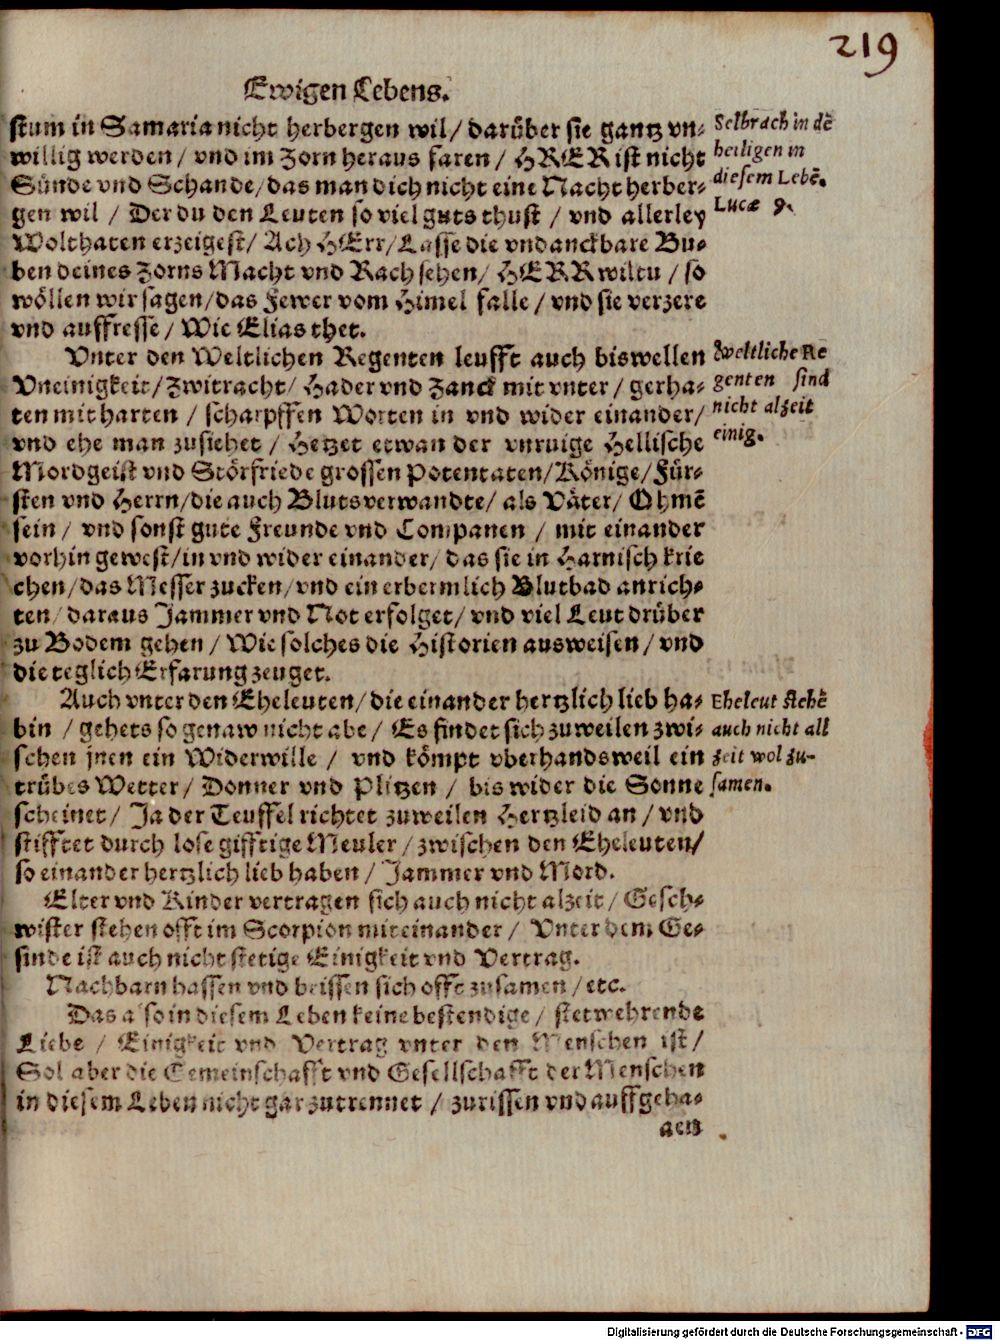 219
Ewigen Lebens.
stum in Samaria nicht herbergen wil/ darüber sie gantz vn-
willig werden/ vnd im Zorn heraus faren/ HRER ist nicht
Sünde vnd Schande/ das man dich nicht eine Nacht herber-
gen wil / Der du den Leuten so viel guts thust / vnd allerley
Wolthaten erzeigest/ Ach HErr/ Lasse die vndanckbare Bu-
ben deines Zorns Macht vnd Rach sehen/ HERR wiltu / so
wöllen wir sagen/ das Fewer vom Himel falle / vnd sie verzere
vnd auffresse / Wie Elias thet.
Selbrach in dē
heiligen in
diesem Lebē.
Lucæ 9.
Vnter den Weltlichen Regenten leufft auch biswellen
Vneinigkeit/ Zwitracht/ Hader vnd Zanck mit vnter / gerha-
ten mit harten / scharpffen Worten in vnd wider einander/
vnd ehe man zusiehet / Hetzet etwan der vnruige Hellische
Mordgeist vnd Störfriede grossen Potentaten/ Könige/ Für-
sten vnd Herrn/ die auch Blutsverwandte/ als Väter/ Ohmē
sein / vnd sonst gute Freunde vnd Companen / mit einander
vorhin gewest/ in vnd wider einander/ das sie in Harnisch krie
chen/ das Messer zucken/ vnd ein erbermlich Blutbad anrich-
ten/ daraus Jammer vnd Not erfolget/ vnd viel Leut drüber
zu Bodem gehen / Wie solches die Historien ausweisen / vnd
die teglich Erfarung zeuget.
Weltliche Re
genten sind
nicht alzeit
einig.
Auch vnter den Eheleuten/ die einander hertzlich lieb ha-
bin / gehets so genaw nicht abe / Es findet sich zuweilen zwi-
schen jnen ein Widerwille / vnd kömpt vberhandsweil ein
trübes Wetter/ Donner vnd Plitzen / bis wider die Sonne
scheinet/ Ja der Teuffel richtet zuweilen Hertzleid an / vnd
stifftet durch lose gifftige Meuler / zwischen den Eheleuten/
so einander hertzlich lieb haben / Jammer vnd Mord.
Eheleut stehē
auch nicht all
zeit wol zu-
samen.
Elter vnd Kinder vertragen sich auch nicht alzeit / Gesch-
wister stehen offt im Scorpion miteinander / Vnter dem Ge-
sinde ist auch nicht stetige Einigkeit vnd Vertrag.
Nachbarn hassen vnd beissen sich offt zusamen / etc.
Das also in diesem Leben keine bestendige / stetwehrende
Liebe / Einigkeit vnd Vertrag vnter den Menschen ist/
Sol aber die Gemeinschafft vnd Gesellschafft der Menschen
in diesem Leben nicht gar zutrennet / zurissen vnd auffgeha-
Digitalisierung gefördert durch die Deutsche Forschungsgemeinschaft - DFG